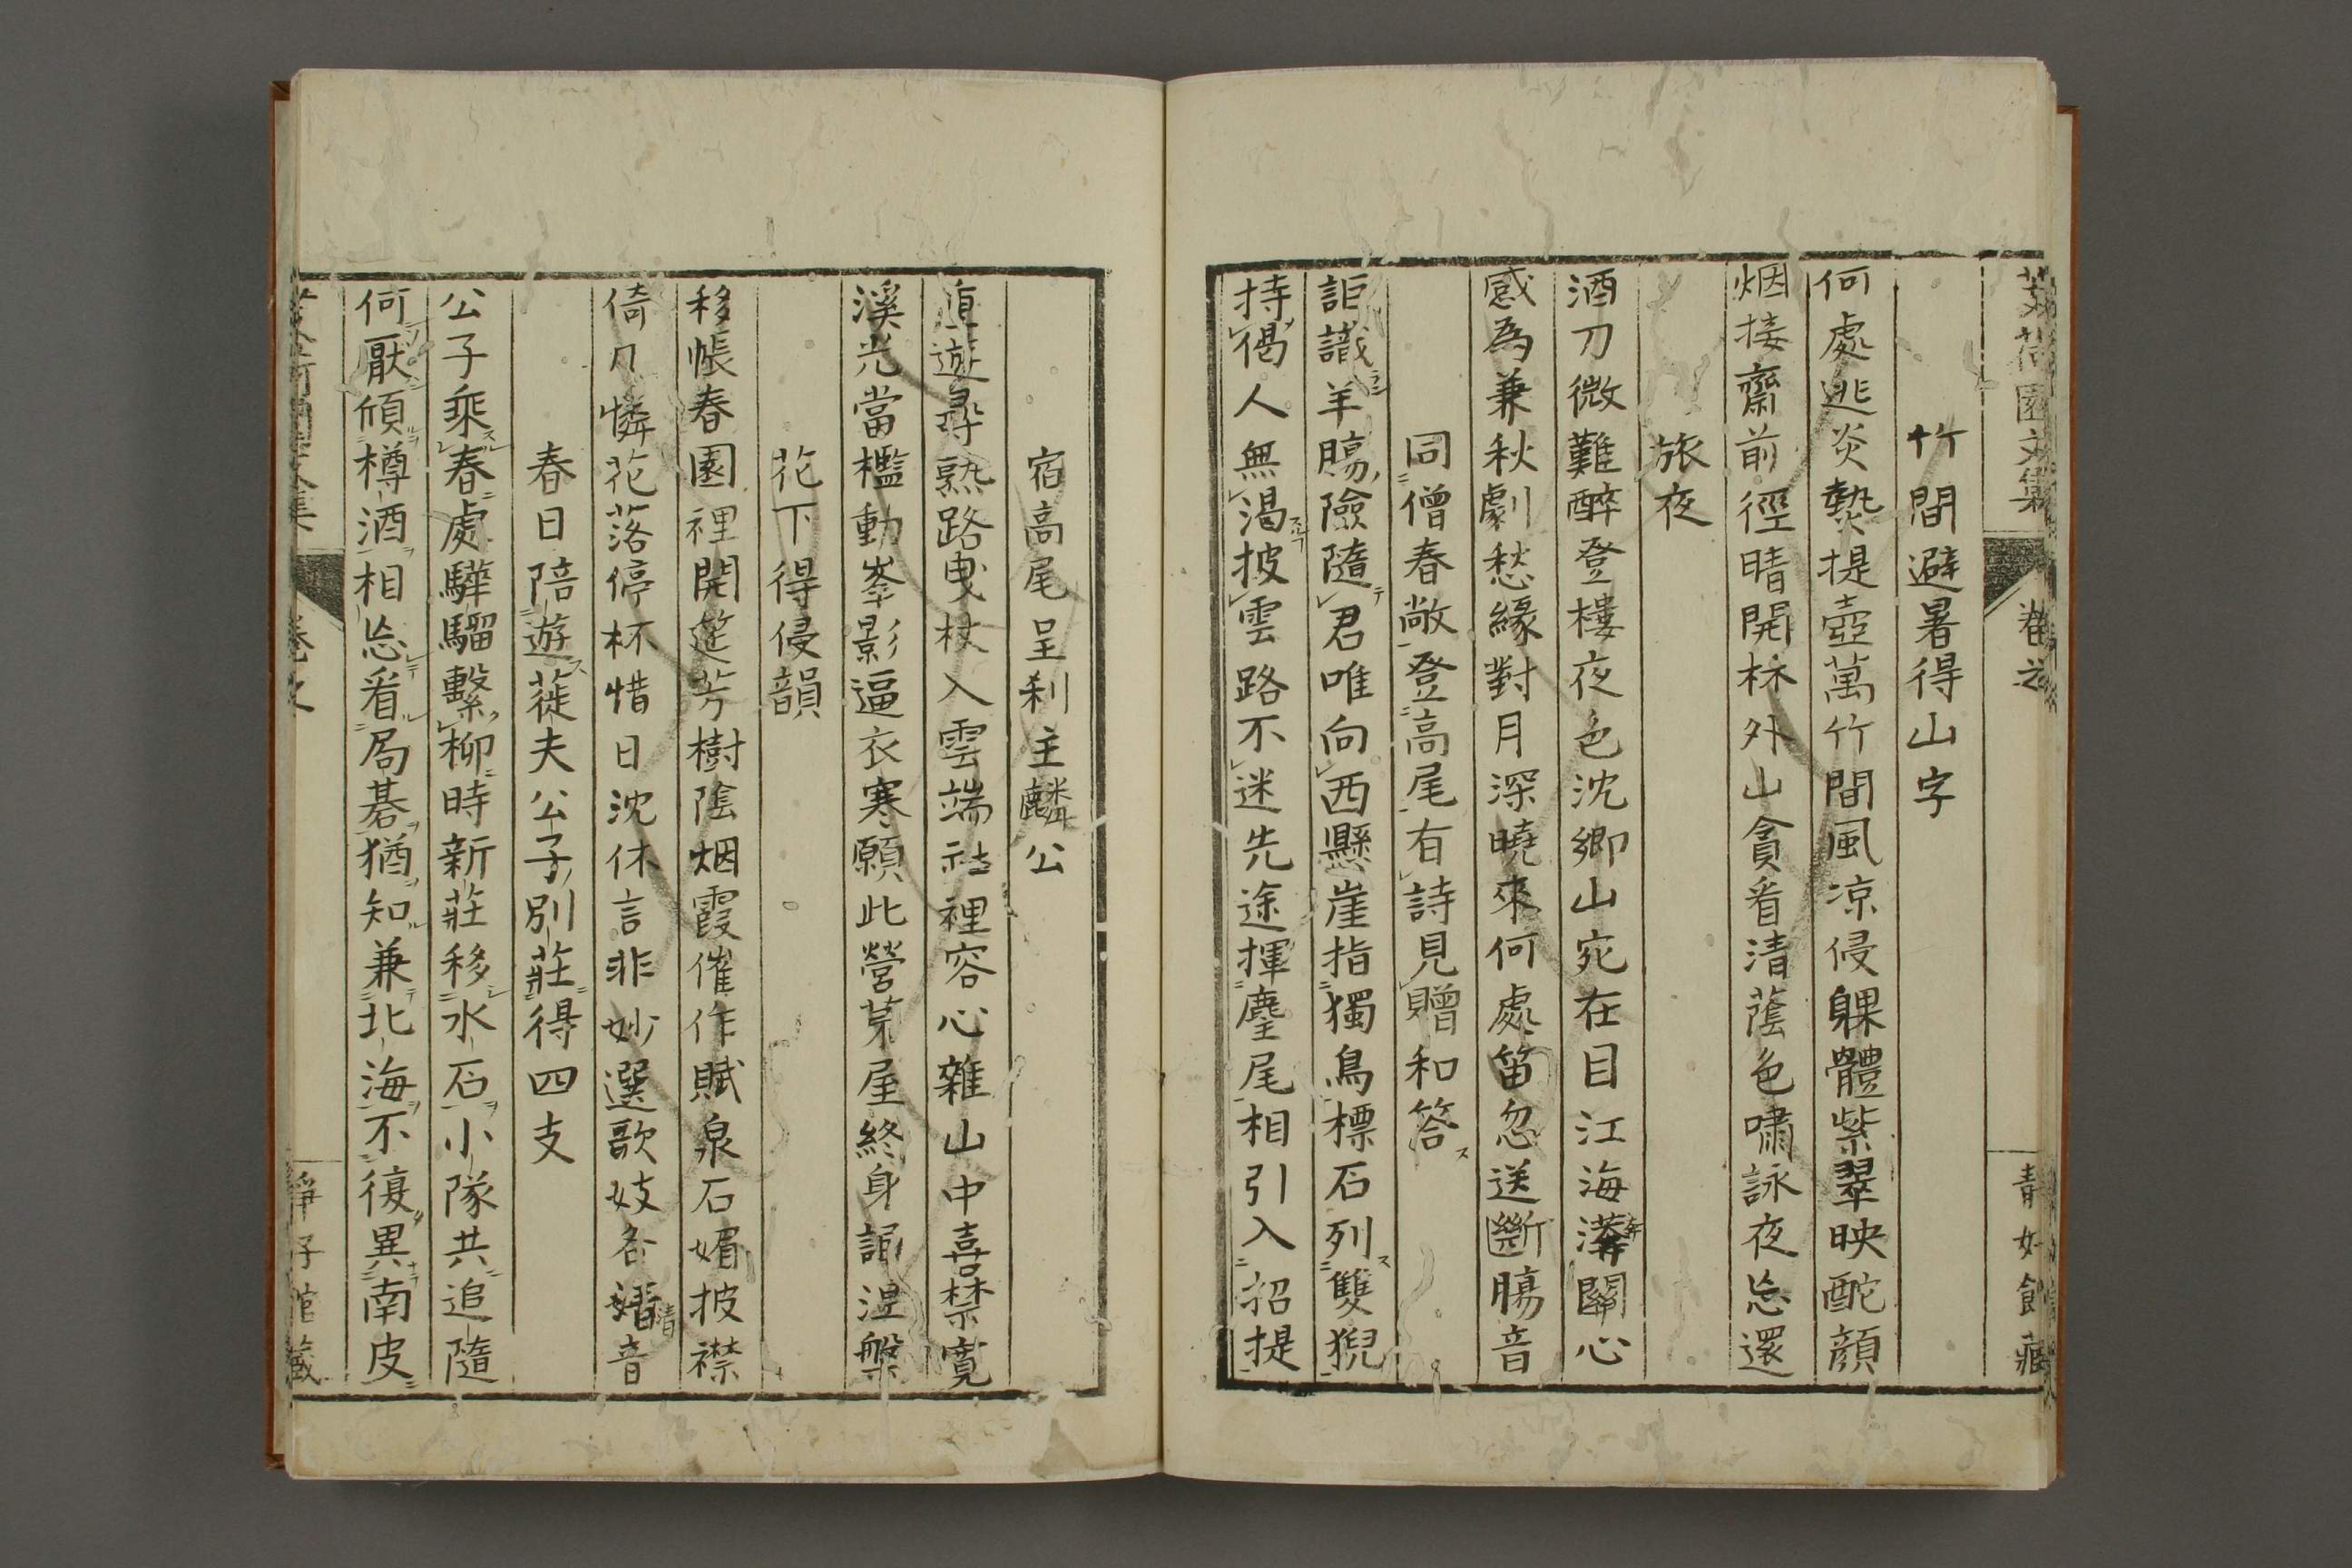 竹間避暑得山字
何處逃炎𤍠提壺萬竹間風凉侵躶體紫翠映酡顔
烟接齋前徑晴開林外山貪看清蔭色嘯詠夜忘還
旅夜
酒刀微難醉登樓夜色沈鄉山宛在目江海關心
感為兼秋劇愁緣對月深曉來何處笛忽送斷腸音
同僧春敞登高尾有詩見贈和答ス
詎識羊腸險隨君唯向西懸崖指獨鳥標石列雙猊
持偈人無渴披雲路不迷先途揮麈尾相引入招提
卷之
青好館藏
宿高尾呈刹主麟公
遊尋熟路曳杖入雲端社裡容心雜山中喜禁寬
溪光當檻動峯影逼衣寒願此營茅屋終身謝涅槃
花下得侵韻
移帳春園裡開莚芳樹陰烟霞催作賦泉石媚披襟
倚几憐花落停杯惜日沈休言非妙選歌妓各清音
春日陪遊蓰夫公子別莊得四支
公子乘春處驊騮繫柳時新莊移水石小隊共追隨
何厭傾樽酒相忘看局碁猶知兼北海不復異南皮